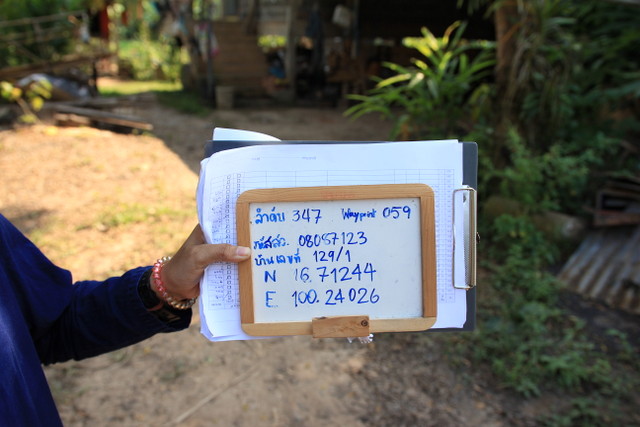 ลำดับ 347 Waypoint 059
รหัสสว. 08057123
บ้านเลขที่ 129/1
N 16.71244
E 100.24026